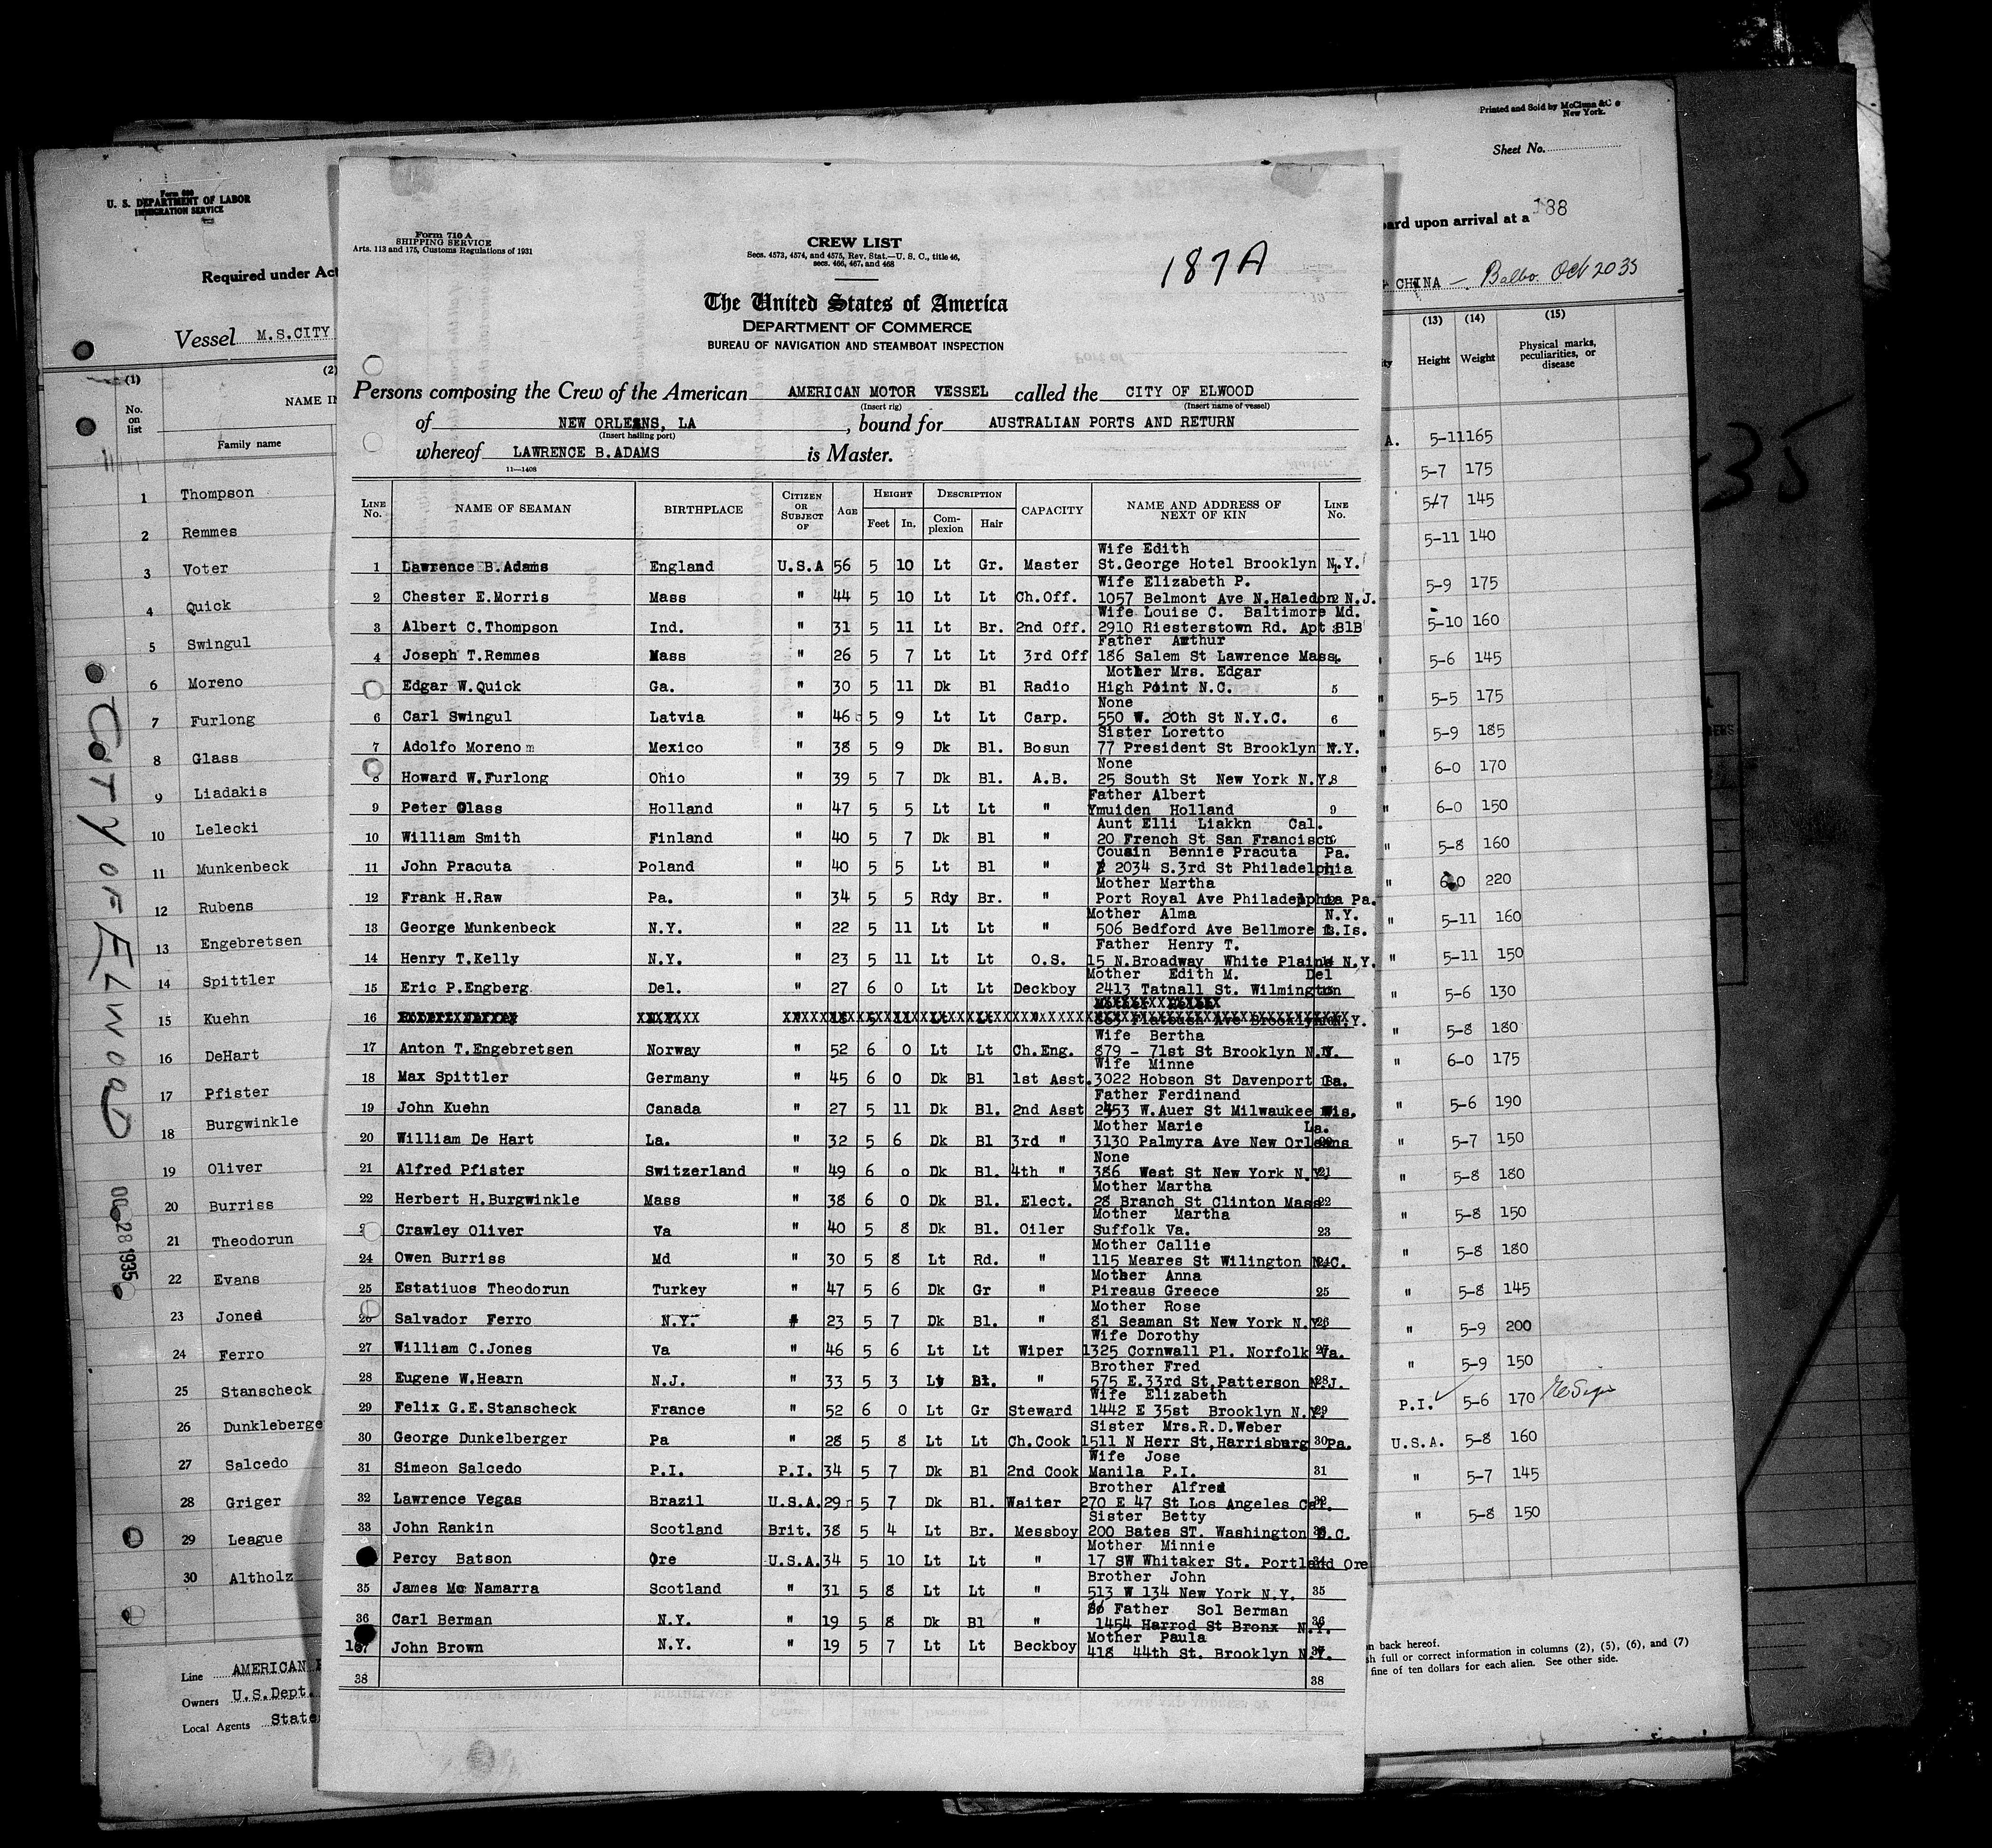 Printed and Sold by McClunn & Co
New York.
Sheet No.
Form 600
U. S. DEPARTMENT OF LABOR
IMMIGRATION SERVICE
Required under Act
oard upon arrival at a
188
CHINA — Balbo Oct 20 35
Vessel M.S.CITY
(1) (2)
No. on list
NAME IN
Family name
1 Thompson
2 Remmes
3 Voter
4 Quick
5 Swingul
6 Moreno
7 Furlong
8 Glass
9 Liadakis
10 Lelecki
11 Munkenbeck
12 Rubens
13 Engebretsen
14 Spittler
15 Kuehn
16 DeHart
17 Pfister
18 Burgwinkle
19 Oliver
20 Burriss
21 Theodorun
22 Evans
23 Joned
24 Ferro
25 Stanscheck
26 Dunkleberge
27 Salcedo
28 Griger
29 League
30 Altholz
Line AMERICAN
Owners U.S.Dept.
Local Agents State
CITY OF ELWOOD
28 1935
Form 710 A
SHIPPING SERVICE
Arts. 113 and 175, Customs Regulations of 1931
CREW LIST
Secs. 4573, 4574, and 4575, Rev. Stat.—U. S. C., title 46,
secs. 466, 467, and 468
187A
The United States of America
DEPARTMENT OF COMMERCE
BUREAU OF NAVIGATION AND STEAMBOAT INSPECTION
Persons composing the Crew of the American AMERICAN MOTOR VESSEL called the CITY OF ELWOOD
(Insert rig) (Insert name of vessel)
of NEW ORLEANS, LA , bound for AUSTRALIAN PORTS AND RETURN
(Insert hailing port)
whereof LAWRENCE B.ADAMS is Master.
11—1408
LINE No. NAME OF SEAMAN BIRTHPLACE CITIZEN OR SUBJECT OF AGE HEIGHT DESCRIPTION CAPACITY NAME AND ADDRESS OF NEXT OF KIN LINE No.
Feet In. Complexion Hair
Wife Edith
1 Lawrence B.Adams England U.S.A 56 5 10 Lt Gr. Master St.George Hotel Brooklyn N.Y.
Wife Elizabeth P.
2 Chester E.Morris Mass " 44 5 10 Lt Lt Ch.Off. 1057 Belmont Ave N.Haledon N.J.
Wife Louise C. Baltimore Md.
3 Albert C.Thompson Ind. " 31 5 11 Lt Br. 2nd Off. 2910 Riesterstown Rd. Apt B1B
Father Arthur
4 Joseph T.Remmes Mass " 26 5 7 Lt Lt 3rd Off 186 Salem St Lawrence Mass.
Mother Mrs. Edgar
Edgar W.Quick Ga. " 30 5 11 Dk Bl Radio High Point N.C. 5
None
6 Carl Swingul Latvia " 46 5 9 Lt Lt Carp. 550 W. 20th St N.Y.C. 6
Sister Loretto
7 Adolfo Moreno Mexico " 38 5 9 Dk Bl. Bosun 77 President St Brooklyn N.Y.
None
8 Howard W.Furlong Ohio " 39 5 7 Dk Bl. A.B. 25 South St New York N.Y. 8
Father Albert
9 Peter Glass Holland " 47 5 5 Lt Lt " Ymuiden Holland 9
Aunt Elli Liakkn Cal.
10 William Smith Finland " 40 5 7 Dk Bl " 20 French St San Francisco
Cousin Bennie Pracuta Pa.
11 John Pracuta Poland " 40 5 5 Lt Bl " 2034 S.3rd St Philadelphia
Mother Martha
12 Frank H.Raw Pa. " 34 5 5 Rdy Br. " Port Royal Ave Philadelphia Pa.
Mother Alma N.Y.
13 George Munkenbeck N.Y. " 22 5 11 Lt Lt " 506 Bedford Ave Bellmore L.Is.
Father Henry T.
14 Henry T.Kelly N.Y. " 23 5 11 Lt Lt O.S. 15 N.Broadway White Plains N.Y.
Mother Edith M. Del
15 Eric P.Engberg Del. " 27 6 0 Lt Lt Deckboy 2413 Tatnall St. Wilmington
16 Flatbush Ave Brooklyn N.Y.
Wife Bertha
17 Anton T.Engebretsen Norway " 52 6 0 Lt Lt Ch.Eng. 879 - 71st St Brooklyn N.Y.
Wife Minne
18 Max Spittler Germany " 45 6 0 Dk Bl 1st Asst. 3022 Hobson St Davenport Ia.
Father Ferdinand
19 John Kuehn Canada " 27 5 11 Dk Bl. 2nd Asst 2453 W.Auer St Milwaukee Wis.
Mother Marie La.
20 William De Hart La. " 32 5 6 Dk Bl 3rd " 3130 Palmyra Ave New Orleans
None
21 Alfred Pfister Switzerland " 49 6 0 Dk Bl. 4th " 386 West St New York N.Y. 21
Mother Martha
22 Herbert H.Burgwinkle Mass " 38 6 0 Dk Bl. Elect. 28 Branch St Clinton Mass 22
Mother Martha
Crawley Oliver Va " 40 5 8 Dk Bl. Oiler Suffolk Va. 23
Mother Callie
24 Owen Burriss Md " 30 5 8 Lt Rd. " 115 Meares St Wilington N.C.
Mother Anna
25 Estatiuos Theodorun Turkey " 47 5 6 Dk Gr " Pireaus Greece 25
Mother Rose
26 Salvador Ferro N.Y. " 23 5 7 Dk Bl. " 81 Seaman St New York N.Y. 26
Wife Dorothy
27 William C.Jones Va " 46 5 6 Lt Lt Wiper 1325 Cornwall Pl. Norfolk Va.
Brother Fred
28 Eugene W.Hearn N.J. " 33 5 3 Lt Bl. " 575 E.33rd St.Patterson N.J.
Wife Elizabeth
29 Felix G.E.Stanscheck France " 52 6 0 Lt Gr Steward 1442 E 35st Brooklyn N.Y. 29
Sister Mrs.R.D.Weber
30 George Dunkelberger Pa " 28 5 8 Lt Lt Ch.Cook 1511 N Herr St,Harrisburg Pa. 30
Wife Jose
31 Simeon Salcedo P.I. P.I. 34 5 7 Dk Bl 2nd Cook Manila P.I. 31
Brother Alfred
32 Lawrence Vegas Brazil U.S.A. 29 5 7 Dk Bl. Waiter 270 E 47 St Los Angeles Cal. 32
Sister Betty
33 John Rankin Scotland Brit. 38 5 4 Lt Br. Messboy 200 Bates ST. Washington D.C.
Mother Minnie
Percy Batson Ore U.S.A. 34 5 10 Lt Lt " 17 SW Whitaker St. Portland Ore
Brother John
35 James Mc Namarra Scotland " 31 5 8 Lt Lt " 513 W 134 New York N.Y. 35
Father Sol Berman
36 Carl Berman N.Y. " 19 5 8 Dk Bl " 1454 Harrod St Bronx N.Y. 36
Mother Paula
John Brown N.Y. " 19 5 7 Lt Lt Beckboy 418 44th St. Brooklyn N.Y. 37
38 38
(13) (14) (15)
Height Weight Physical marks, peculiarities, or disease
A. 5-11 165
5-7 175
5-7 145
5-11 140
5-9 175
5-10 160
" 5-6 145
" 5-5 175
" 5-9 185
" 6-0 170
" 6-0 150
" 5-8 160
" 6-0 220
" 5-11 160
" 5-11 150
" 5-6 130
" 5-8 180
" 6-0 175
" 5-6 190
" 5-7 150
" 5-8 180
" 5-8 150
" 5-8 180
" 5-8 145
" 5-9 200
" 5-9 150
P.I. 5-6 170
U.S.A. 5-8 160
" 5-7 145
" 5-8 150
n back hereof.
sh full or correct information in columns (2), (5), (6), and (7)
fine of ten dollars for each alien. See other side.
35